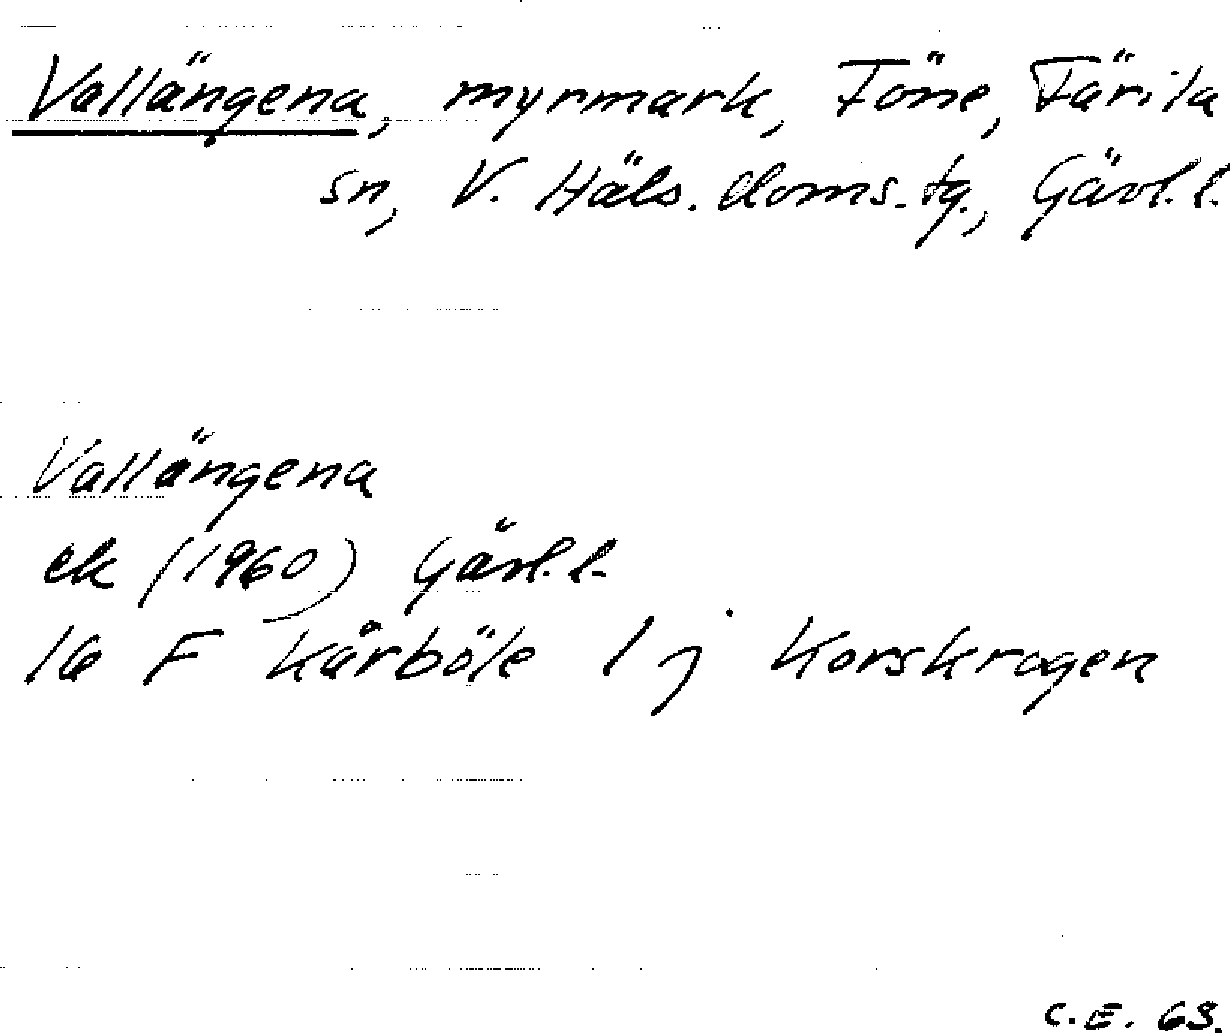 Vallängena, myrmark, Föne, Färila
sn, V. Häls. doms.tg., Gävl.l.
Vallängena
ek (1960) Gävl.l.
16 F Kårböle 1 j Korskrogen
C.E. 63.